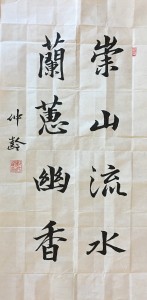 崇山流水
蘭蕙幽香
仲齡